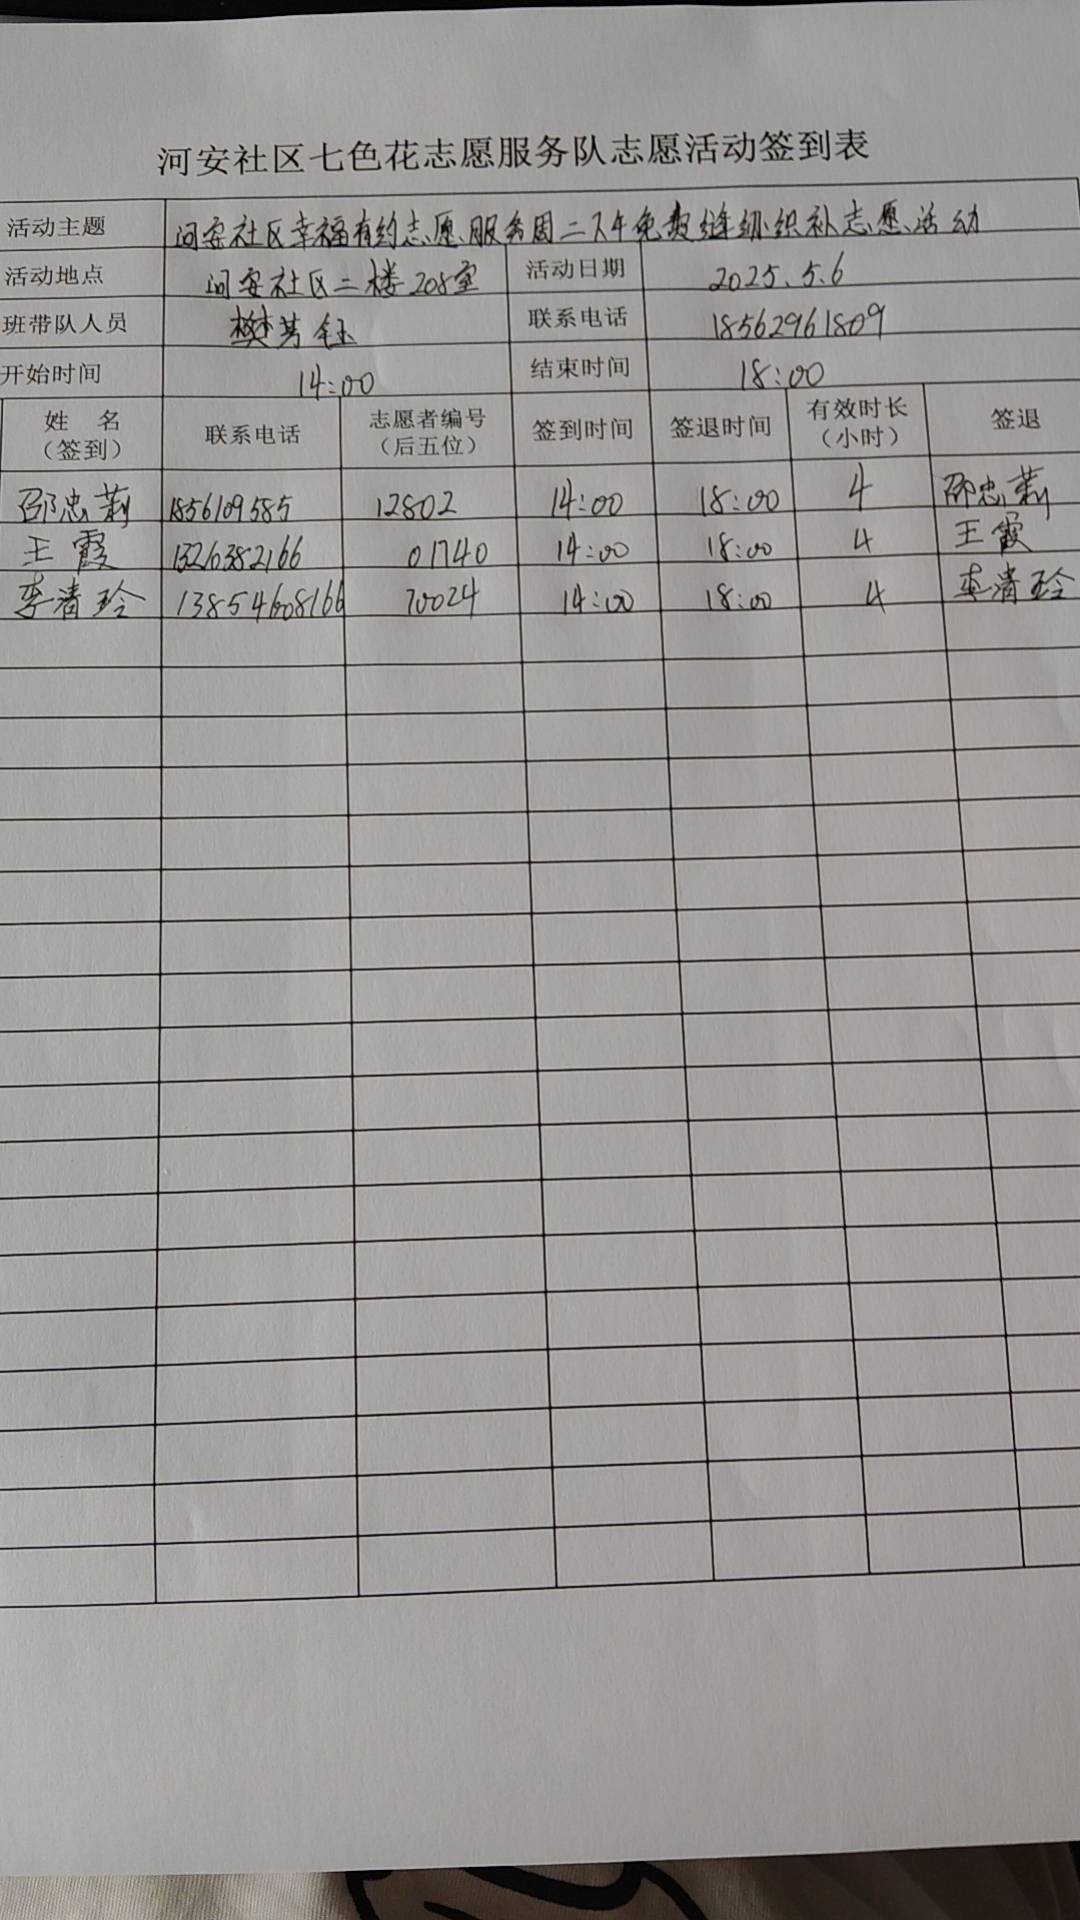 河安社区七色花志愿服务队志愿活动签到表
活动主题 河安社区幸福有约志愿服务周二下午免费缝纫织补志愿活动
活动地点 河安社区二楼208室 活动日期 2025.5.6
班带队人员 樊芳钰 联系电话 18562961809
开始时间 14:00 结束时间 18:00
姓 名 联系电话 志愿者编号 签到时间 签退时间 有效时长 签退
（签到） （后五位） （小时）
邵忠莉 1856109585 12802 14:00 18:00 4 邵忠莉
王霞 1326382166 01740 14:00 18:00 4 王霞
李清玲 13854608166 70024 14:00 18:00 4 李清玲